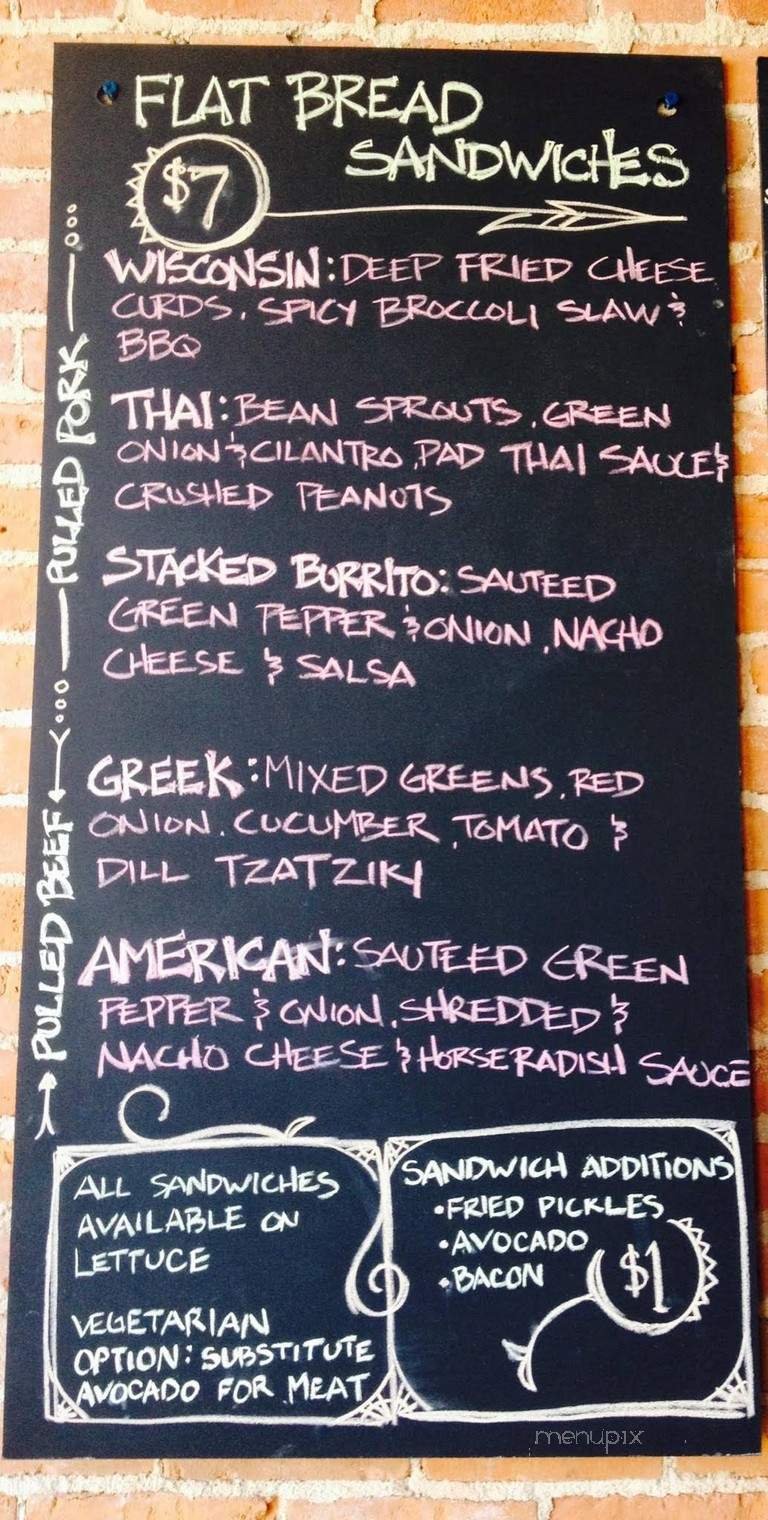 FLAT BREAD
SANDWICHES
$7
WISCONSIN: DEEP FRIED CHEESE
CURDS, SPICY BROCCOLI SLAW &
BBQ
THAI: BEAN SPROUTS, GREEN
ONION & CILANTRO, PAD THAI SAUCE &
CRUSHED PEANUTS
STACKED BURRITO: SAUTEED
GREEN PEPPER & ONION, NACHO
CHEESE & SALSA
PULLED PORK
GREEK: MIXED GREENS, RED
ONION, CUCUMBER, TOMATO &
DILL TZATZIKI
AMERICAN: SAUTEED GREEN
PEPPER & ONION, SHREDDED &
NACHO CHEESE & HORSERADISH SAUCE
PULLED BEEF
ALL SANDWICHES
AVAILABLE ON
LETTUCE
VEGETARIAN
OPTION: SUBSTITUTE
AVOCADO FOR MEAT
SANDWICH ADDITIONS
•FRIED PICKLES
•AVOCADO
•BACON
$1
menupix